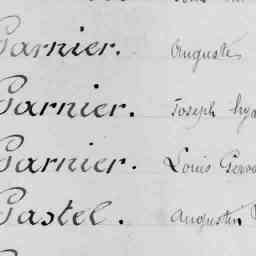 Garnier. Auguste
Garnier. Joseph
Garnier. Louis
Gastel. Augustin